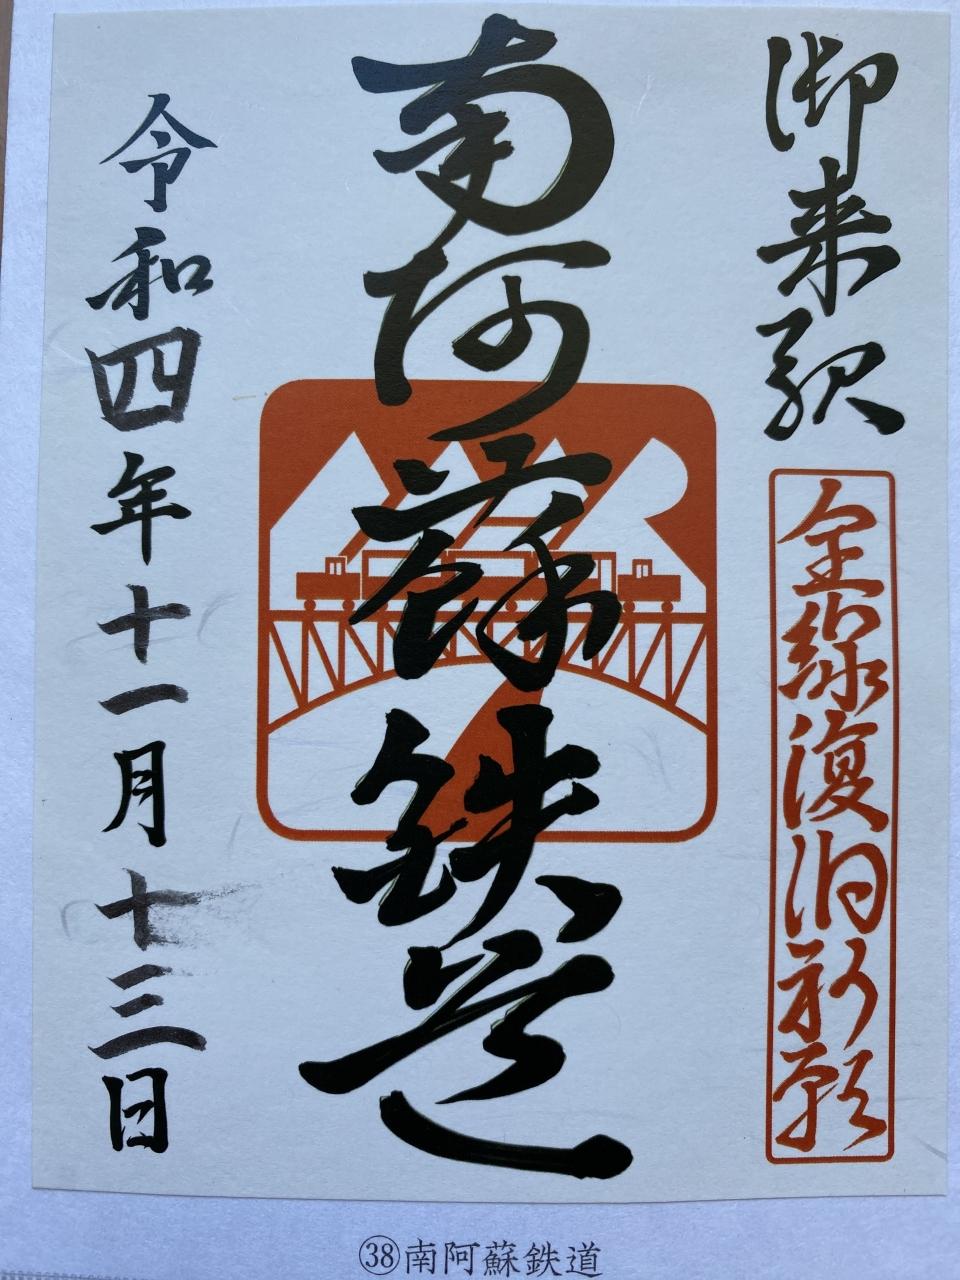 御来駅
全線復旧祈願
南阿蘇鉄道
令和四年十一月十三日
㊳南阿蘇鉄道